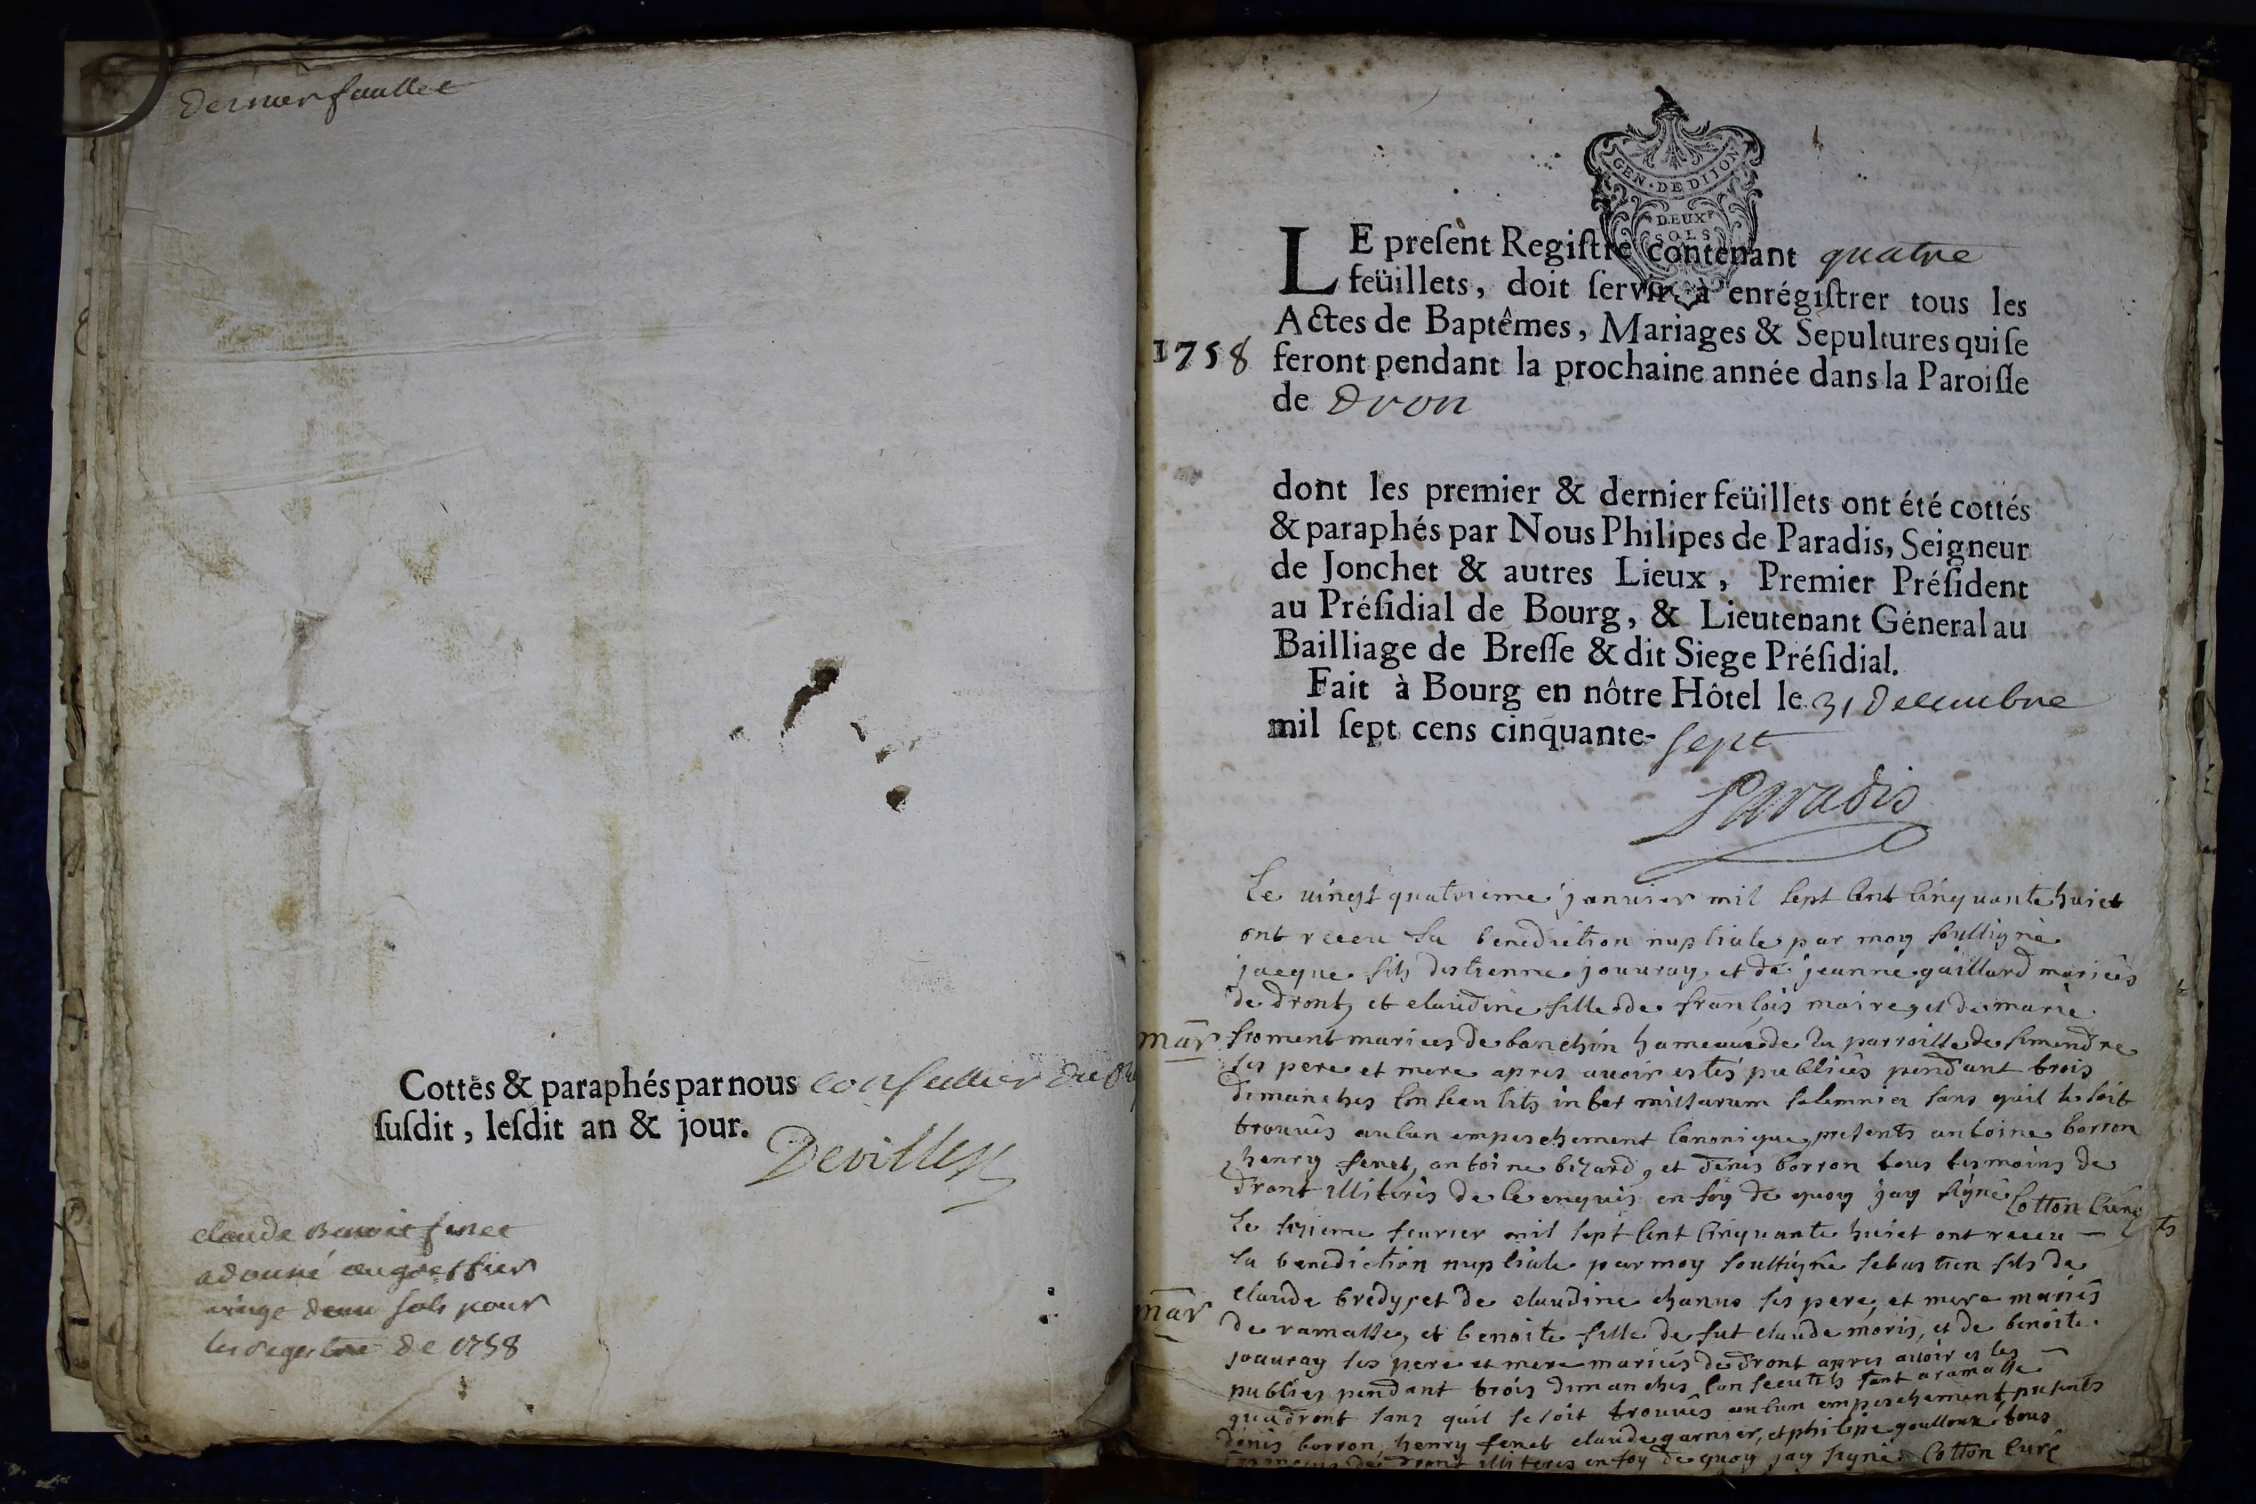 Dernier feuillet
Cottés & paraphés par nous conseiller du
ſuſdit, leſdit an & jour.
Deviller
claude Benoit fenet
a donné au greffier
vingt deux sols pour
les de 1758
GEN. DE DIJON
DEUX
SOLS
LE preſent Regiſtre contenant quatre
feüillets, doit ſervir à enrégiſtrer tous les
Actes de Baptêmes, Mariages & Sepultures qui ſe
1758 feront pendant la prochaine année dans la Paroiſſe
de Dron
dont les premier & dernier feüillets ont été cottés
& paraphés par Nous Philipes de Paradis, Seigneur
de Jonchet & autres Lieux, Premier Préſident
au Préſidial de Bourg, & Lieutenant Géneral au
Bailliage de Breſſe & dit Siege Préſidial.
Fait à Bourg en nôtre Hôtel le 31 Decembre
mil ſept cens cinquante-sept
Paradis
Le vingt quatrieme janvier mil sept cent cinquante huict
ont receu la benediction nuptiale par moy soussigné
jacque fils destienne jouuray et de jeanne gaillard mariés
de dront, et claudine fille de francois maire, et de marie
mar froment mariees de banchin hameaux de la parroisse de simandre
ses pere et mere apres auoir estés publiés pendant trois
dimanches consecutifs inter missarum solemnia sans quil se soit
trouués aucun empeschement canonique presents antoine borron
henry fenet, antoine bizard, et denis borron tous tesmoins de
dront illiterés de ce enquis en foy de quoy jay signé Cotton Curé
le sizieme feurier mil sept cent cinquante huict ont receu
la benediction nuptiale par moy soussigné sebastien fils de
mar claude bredy, et de claudine chanus ses pere et mere mariés
de ramasse, et benoite fille de fut claude moris, et de benoite
jouuray ses pere et mere mariés de dront apres auoir estes
publiés pendant trois dimanches consecutifs tant a ramasse
qua dront sans quil se soit trouués aucun empeschement, presents
denis borron, henry fenet claude garnier, et philipe goulloux tous
tesmoins de dront illiterés en foy de quoy jay signé Cotton curé